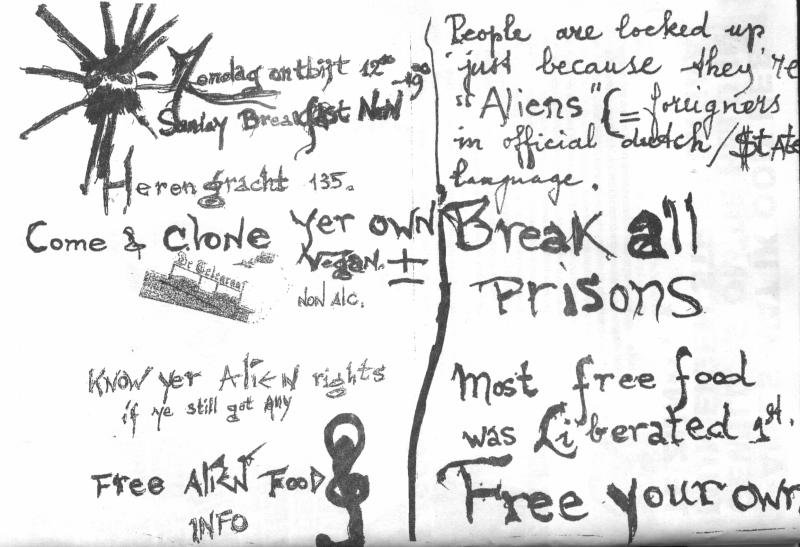 Zondag ontbijt 12°° - 19°°
Sunday Breakfast NoN
Herengracht 135.
Come & clone yer own
Vegan. ±
De Telegraaf
NON Alc.
Know yer Alien rights
if ye still got Any
Free Alien Food
INFO
People are locked up
just because they're
"Aliens" (= foreigners
in official dutch/$tAte
language.
Break all
Prisons
Most free food
was Li'berated 1st.
Free your own